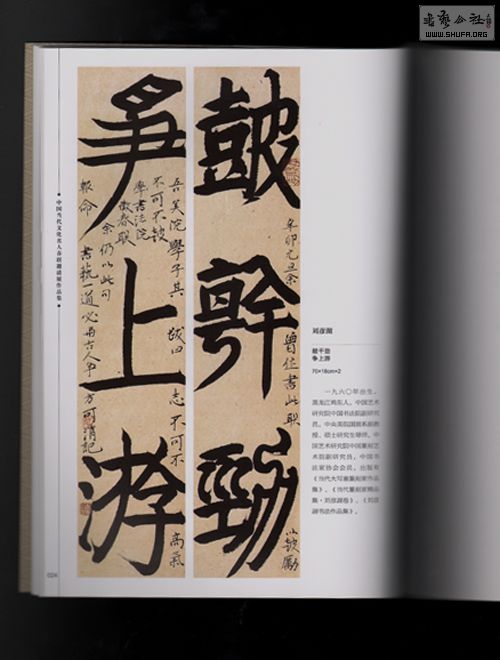 書藝公社
WWW.SHUFA.ORG
中国当代文化名人春联邀请展作品集
鼓幹勁
辛卯元旦余曾作書此联以鼓勵
爭上游
吾美院學子其志不可不高氣
不可不鼓
學書法院
徵春联
余仍以此句
報命書藝一道必
刘彦湖
鼓干劲
争上游
70×18cm×2
一九六〇年出生，
黑龙江鸡东人。中国艺术
研究院中国书法院副研究
员，中央美院国画系副教
授、硕士研究生导师。中
国艺术研究院中国篆刻艺
术院副研究员，中国书
法家协会会员。出版有
《当代大写意篆刻家作品
集》、《当代篆刻家精品
集·刘彦湖卷》、《刘彦
湖书法作品集》。
024